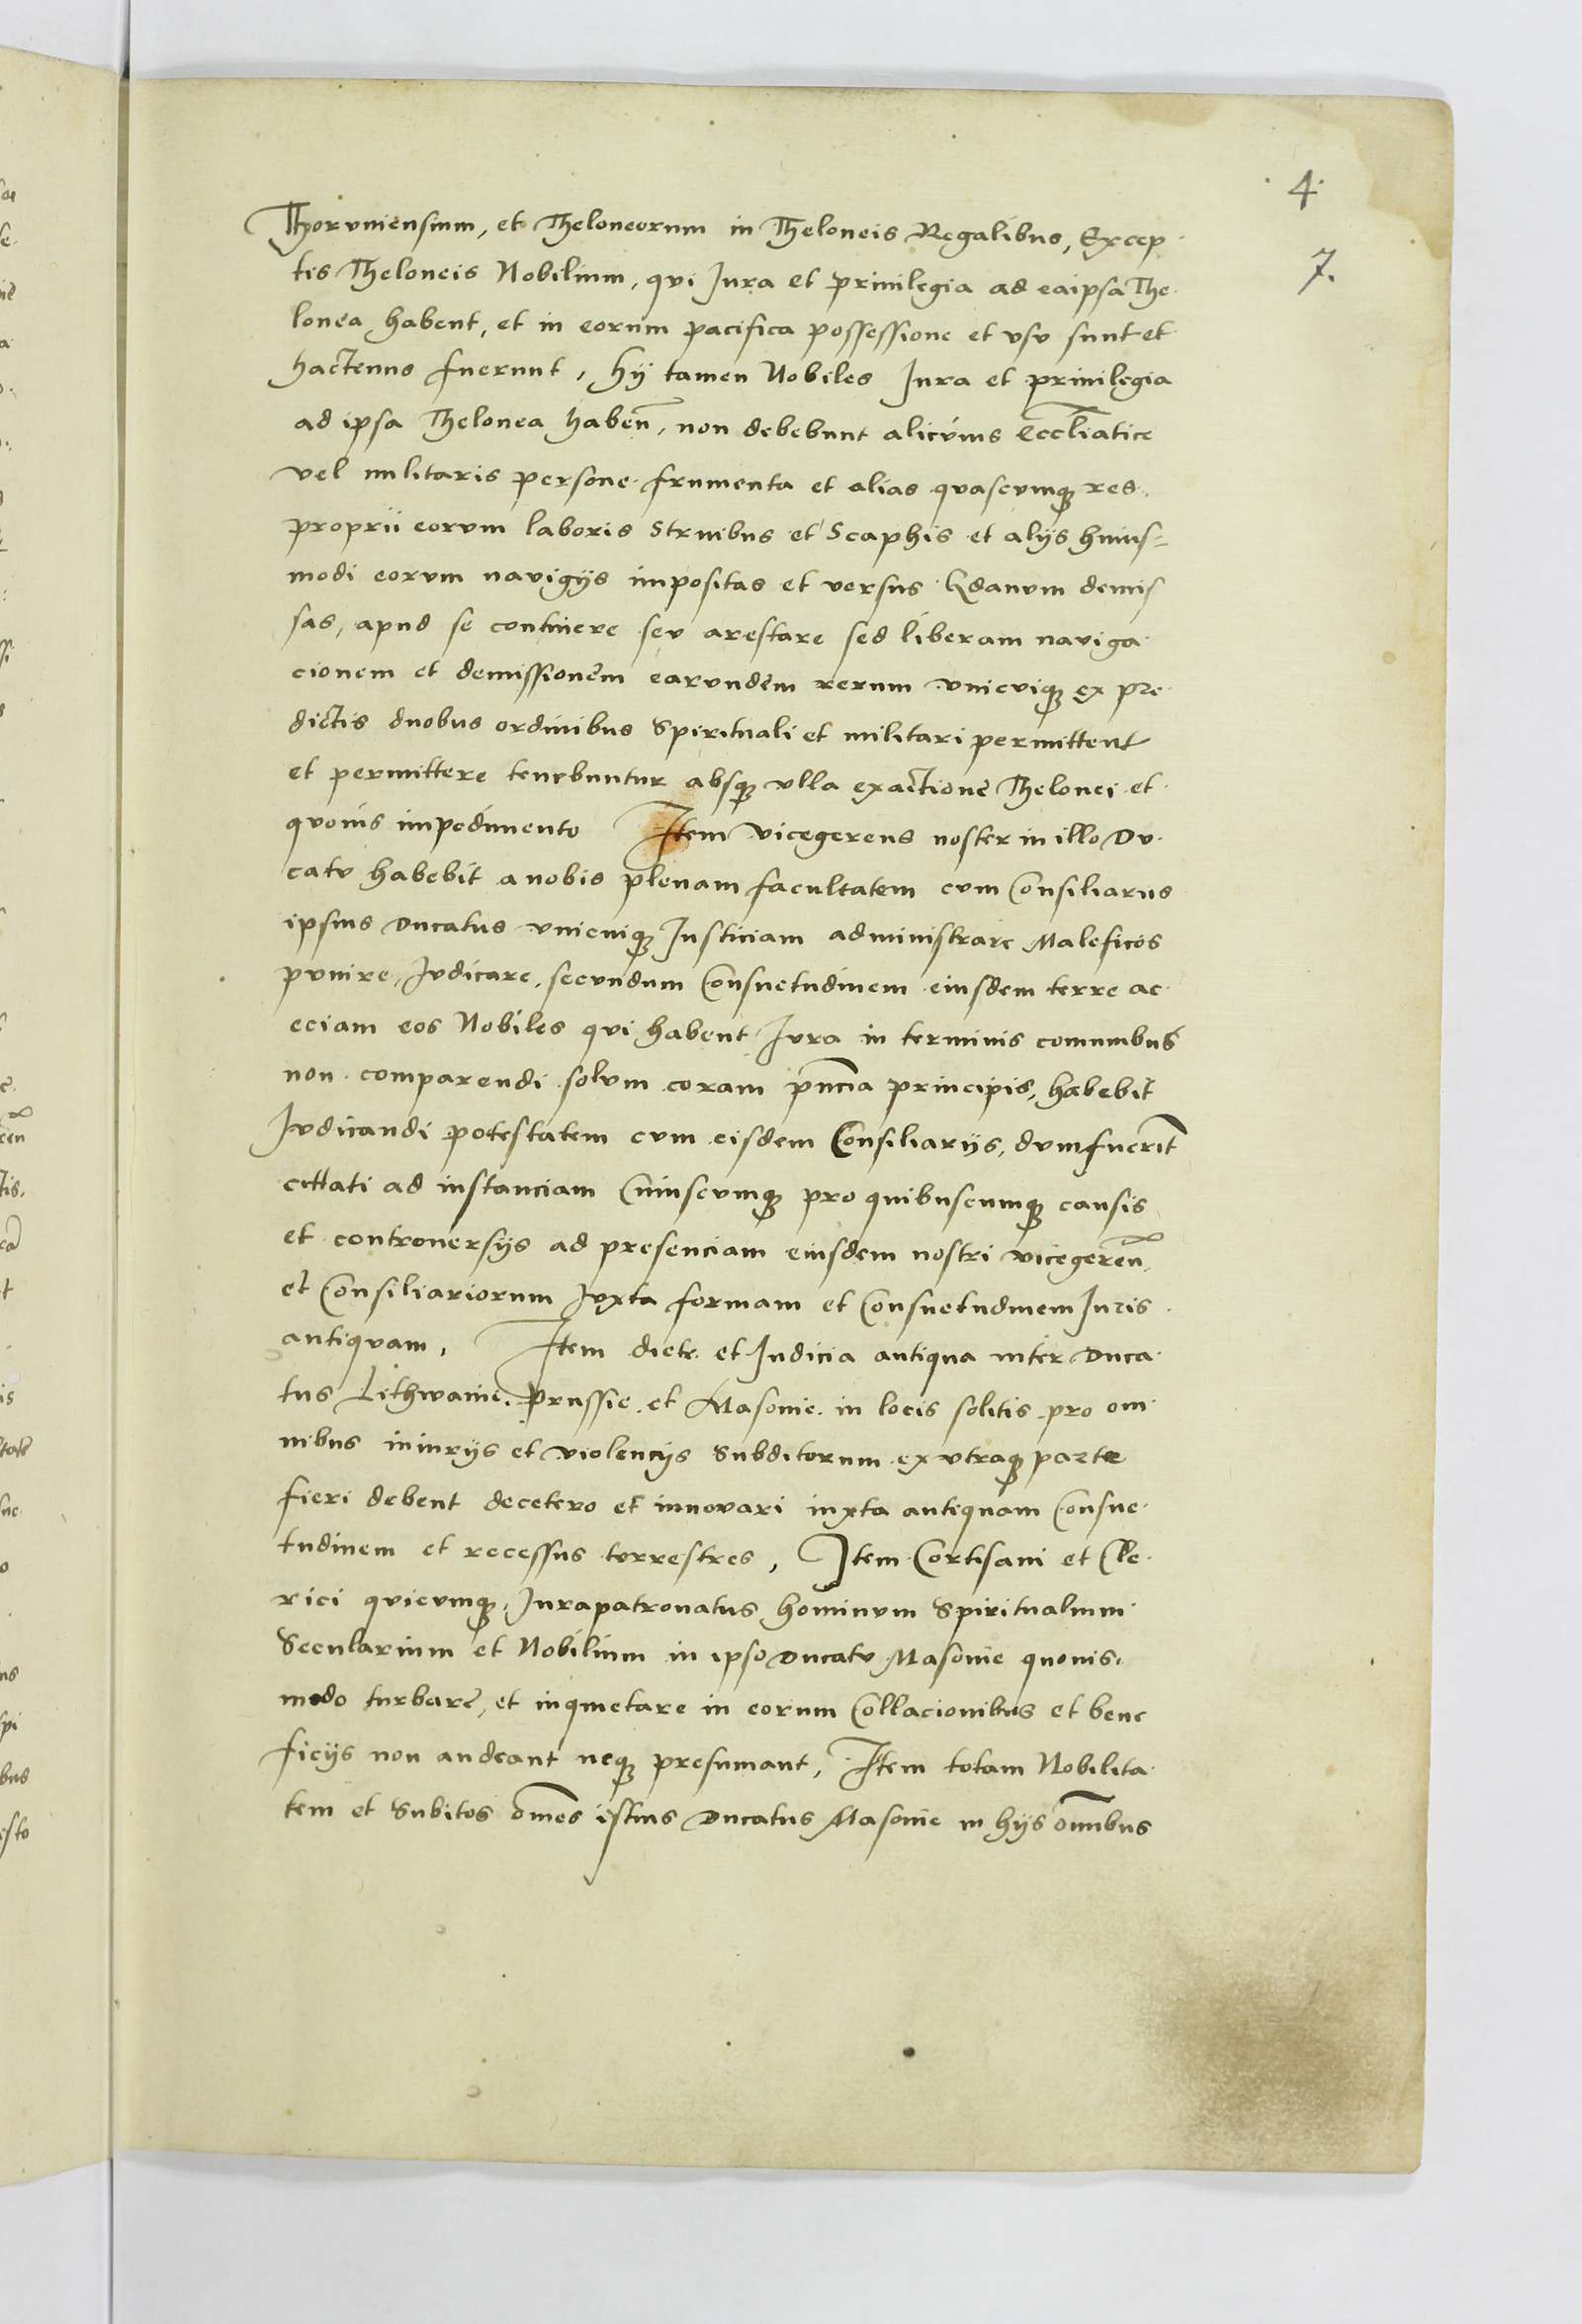 4
7.
Thoruniensium, et Theloneorum in Theloneis Regalibus, Excep
tis Theloneis Nobilium, qui Jura et priuilegia ad eaipsa The
lonea habent, et in eorum pacifica possessione et vsv sunt et
hactenus fuerunt, hij tamen Nobiles Jura et priuilegia
ad ipsa Thelonea haben̄, non debebunt alicuius Eccl̄iatice
vel militaris persone frumenta et alias quascumq₃ res
proprii eorum laboris Struibus et Scaphis et alijs huius=
modi eorum nauigijs impositas et versus Gdanum demis
sas, apud se continere seu arestare sed liberam nauiga
cionem et demissionem earundem rerum vnicuiq₃ ex pre
dictis duobus ordinibus Spirituali et militari permittent
et permittere tenebuntur absq₃ vlla exactione Thelonei et
quouis impedimento Item vicegerens noster in illo Du
catu habebit a nobis plenam facultatem cum Consiliarus
ipsius Ducatus vnicuiq₃ Justiciam administrare Maleficos
punire, Judicare, secundum Consuetudinem eiusdem terre ac
eciam eos Nobiles qui habent Jura in terminis comunibus
non comparendi solum coram pn̄cia principis, habebit
Judicandi potestatem cum eisdem Consiliarijs, dum fuerīt
cittati ad instanciam Cuiuscumq₃ pro quibuscumq₃ causis
et controuersijs ad presenciam eiusdem nostri vicegeren̄,
et Consiliariorum Juxta formam et Consuetudinem Juris
antiquam, Item diete et Judicia antiqua inter Duca
tus Lithwanie, prussie et Masouie in locis solitis pro om
nibus iniurijs et violencijs Subditorum ex vtraq₃ parte
fieri debent decetero et innouari iuxta antiquam Consue
tudinem et recessus terrestres, Item Cortisani et Cle
rici quicumq₃, Jurapatronatus hominum Spiritualium
Secularium et Nobilium in ipso Ducatu Masouie quouis
modo turbare, et inquietare in eorum Collacionibus et bene
ficijs non audeant neq₃ presumant, Item totam Nobilita
tem et Subitos om̄es istius Ducatus Masouie in hijs om̄ibus